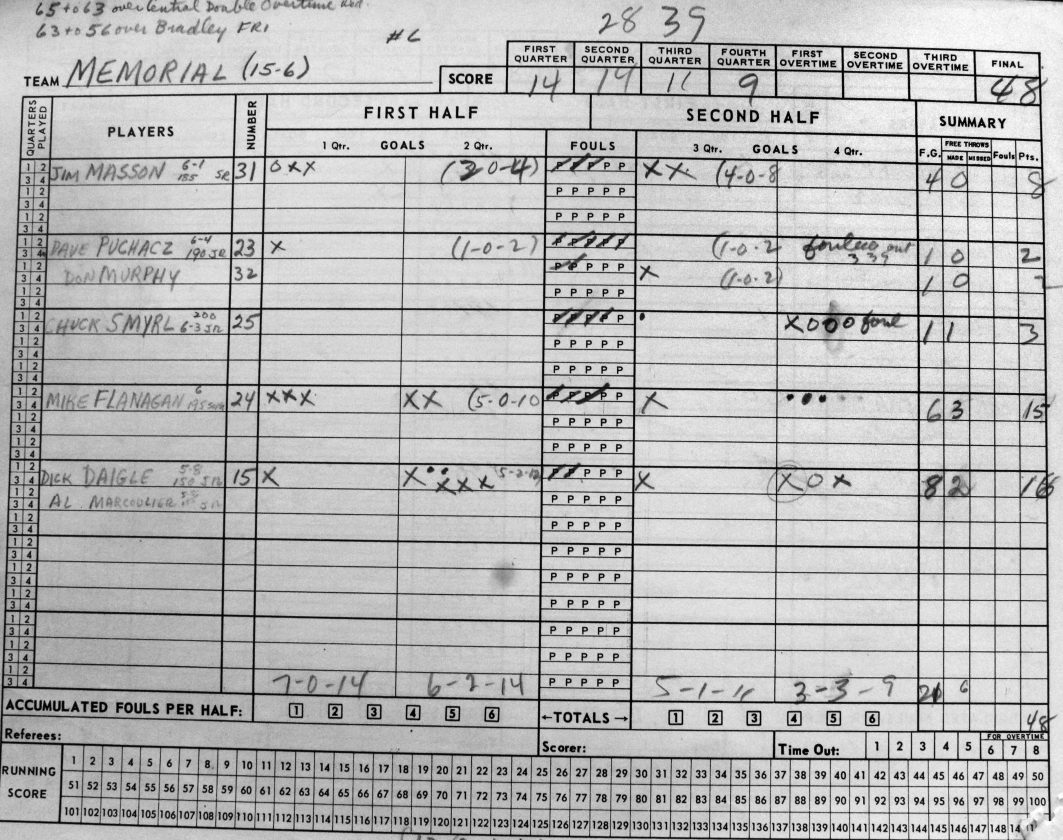 65 to 63 over Central Double Overtime Wed.
63 to 56 over Bradley FRI
#6
28 39
TEAM MEMORIAL (15-6)
SCORE
FIRST QUARTER SECOND QUARTER THIRD QUARTER FOURTH QUARTER FIRST OVERTIME SECOND OVERTIME THIRD OVERTIME FINAL
14 14 11 9 48
QUARTERS PLAYED PLAYERS NUMBER FIRST HALF SECOND HALF SUMMARY
1 Qtr. GOALS 2 Qtr. FOULS 3 Qtr. GOALS 4 Qtr. F.G. FREE THROWS MADE MISSED Fouls Pts.
JIM MASSON 6-1 185 SR 31 O X X (2 0-4) P P P P P X X (4-0-8 4 0 8
P P P P P
P P P P P
DAVE PUCHACZ 6-4 190 SR 23 X (1-0-2) P P P P P (1-0-2 fouled out 3 39 1 0 2
DON MURPHY 32 P P P P P X (1-0-2) 1 0 2
P P P P P
CHUCK SMYRL 200 6-3 JR 25 P P P P P • X O O O foul 1 1 3
P P P P P
P P P P P
MIKE FLANAGAN 6 24 X X X X X (5-0-10 P P P P P X 6 3 15
P P P P P
P P P P P
DICK DAIGLE 5-8 150 JR 15 X X • • X X X P P P P P X X O X 8 2 16
AL MARCOULIER P P P P P
P P P P P
P P P P P
P P P P P
P P P P P
P P P P P
P P P P P
7-0-14 6-2-14 P P P P P 5-1-11 3-3-9 21 6
ACCUMULATED FOULS PER HALF: 1 2 3 4 5 6 ←TOTALS→ 1 2 3 4 5 6 48
Referees: Scorer: Time Out: 1 2 3 4 5 FOR OVERTIME 6 7 8
RUNNING SCORE
1 2 3 4 5 6 7 8 9 10 11 12 13 14 15 16 17 18 19 20 21 22 23 24 25 26 27 28 29 30 31 32 33 34 35 36 37 38 39 40 41 42 43 44 45 46 47 48 49 50
51 52 53 54 55 56 57 58 59 60 61 62 63 64 65 66 67 68 69 70 71 72 73 74 75 76 77 78 79 80 81 82 83 84 85 86 87 88 89 90 91 92 93 94 95 96 97 98 99 100
101 102 103 104 105 106 107 108 109 110 111 112 113 114 115 116 117 118 119 120 121 122 123 124 125 126 127 128 129 130 131 132 133 134 135 136 137 138 139 140 141 142 143 144 145 146 147 148